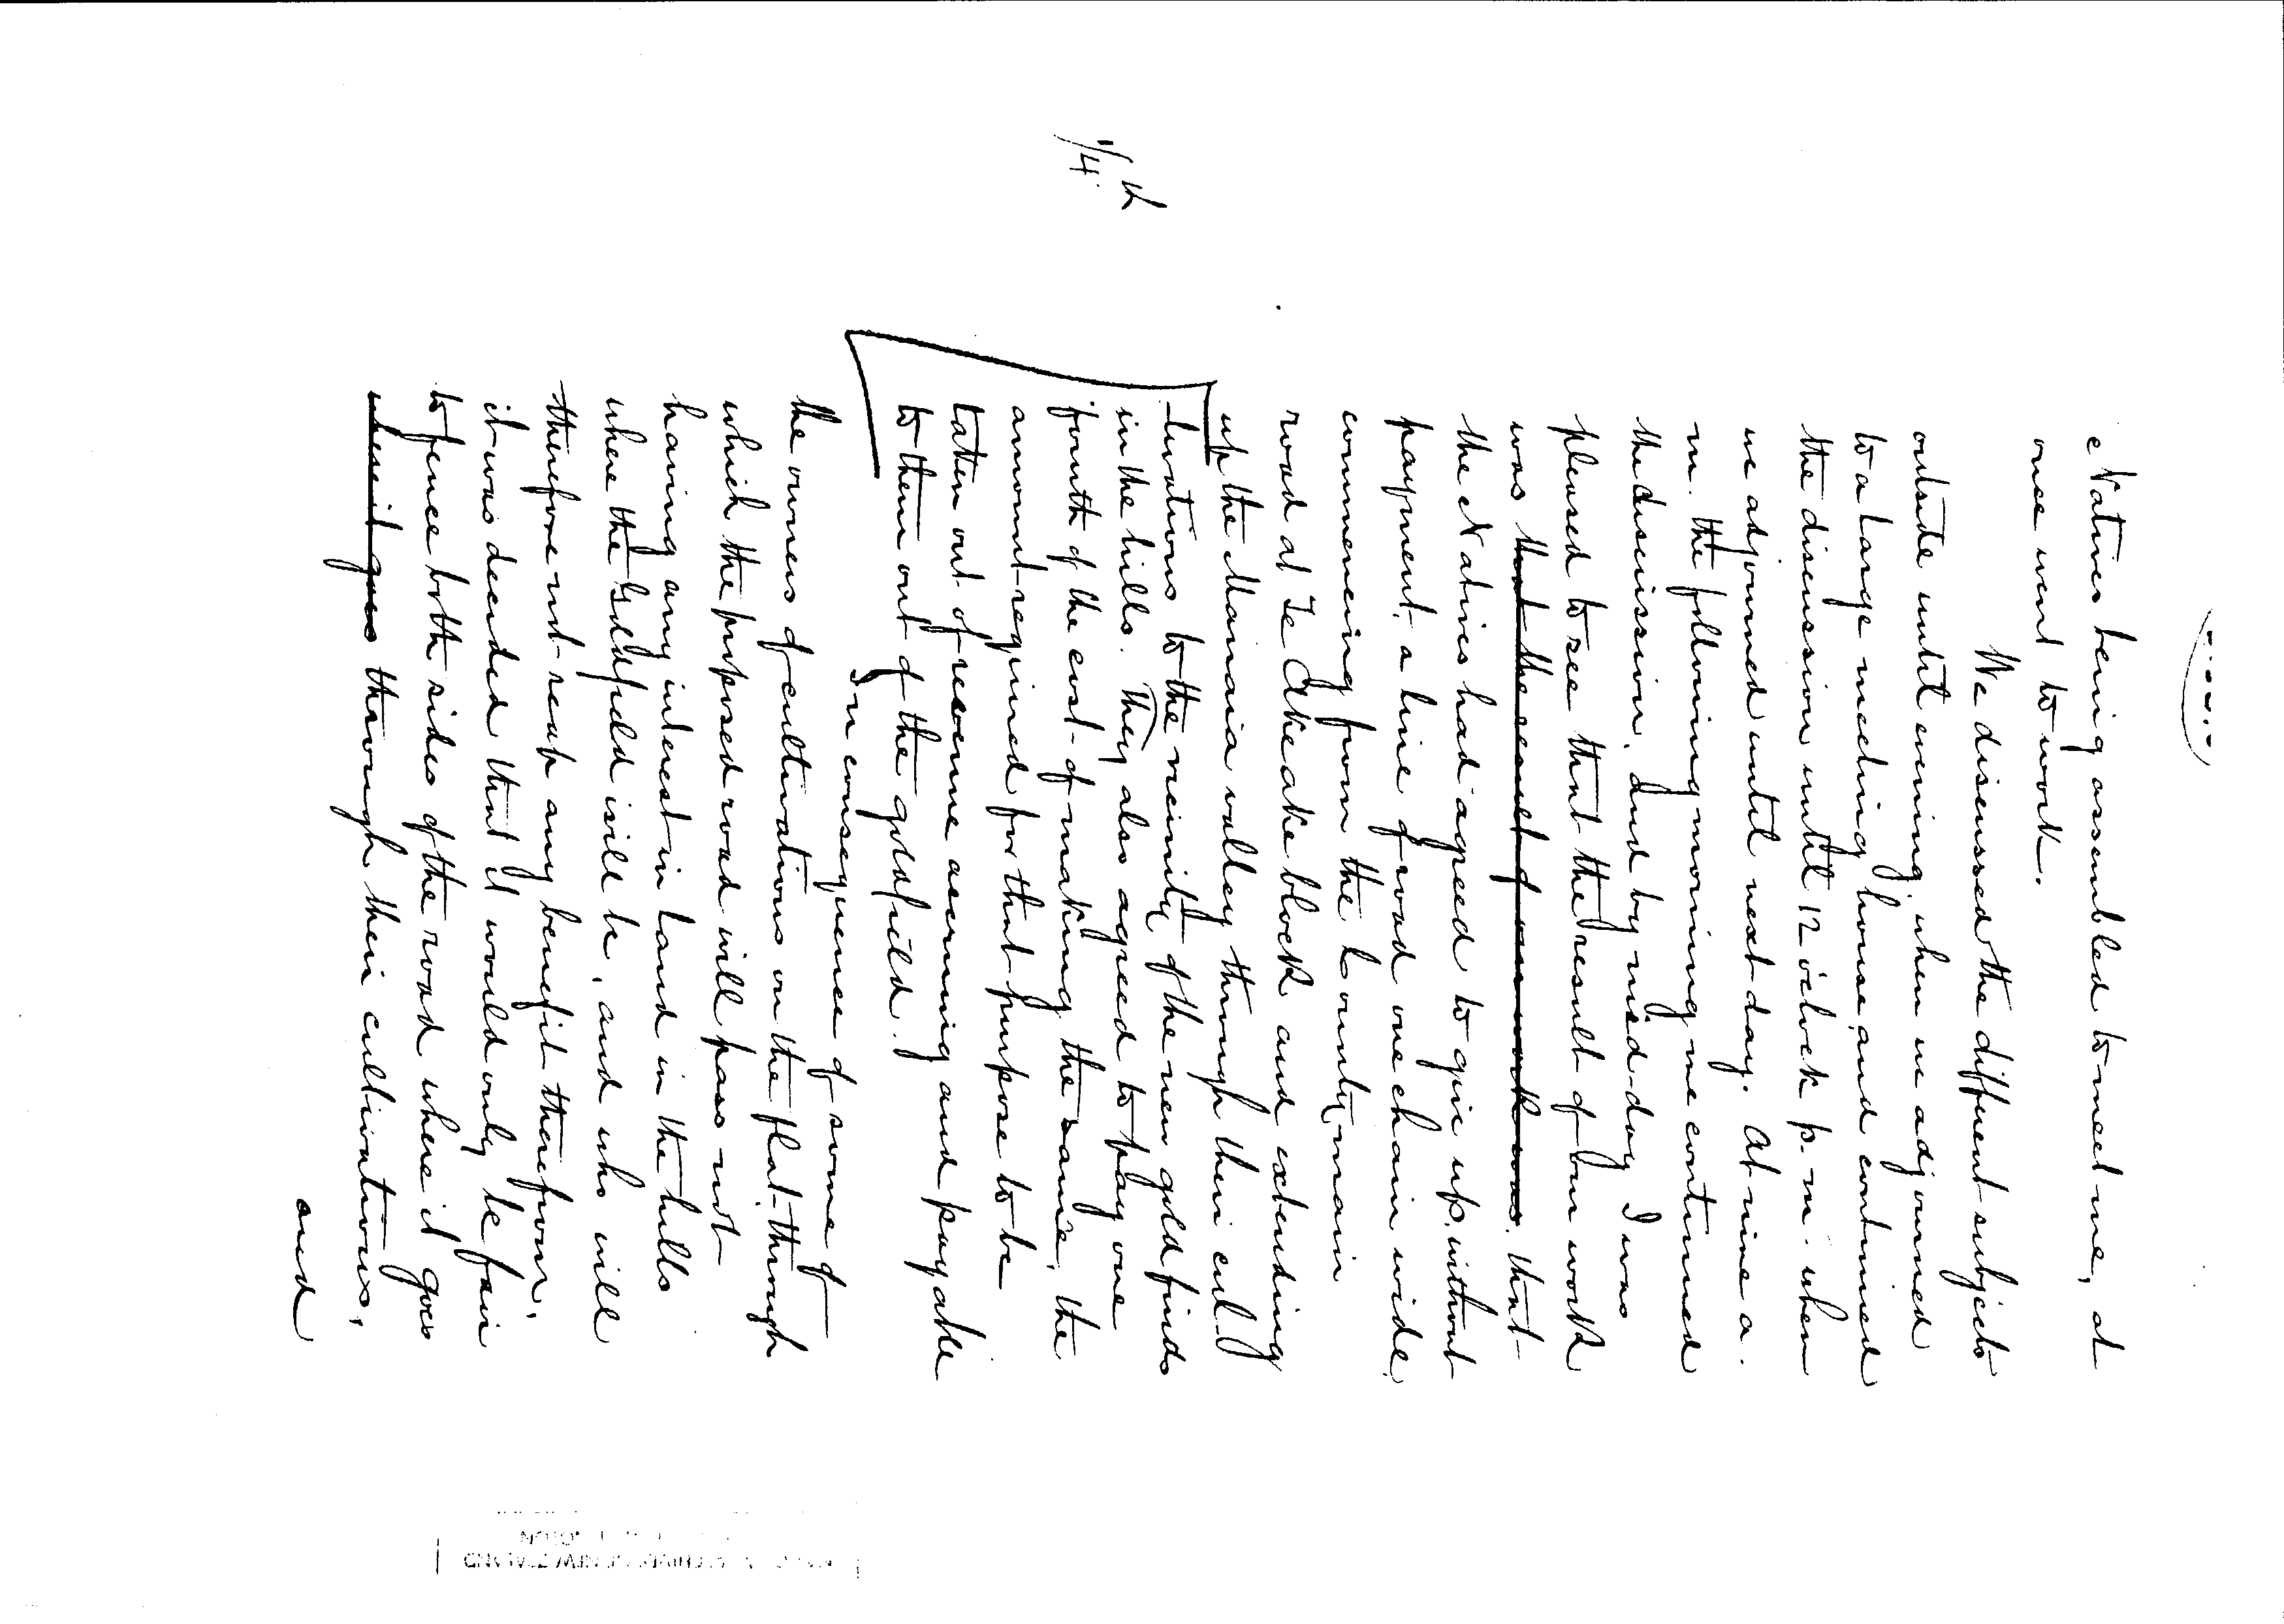 Natives being assembled to meet me, at
once went to work.
We discussed the different subjects
outside until evening, when we adjourned
to a large meeting house, and continued
the discussion until 12 o'clock p.m. when
we adjourned until next day. At nine a.
m. the following morning we continued
the discussion, and by mid-day I was
pleased to see that the result of our work
was that the result of our work was, that
the Natives had agreed to give up, without
payment, a line of road one chain wide,
commencing from the County main
road at Te Akeake block and extending
up the Waiaia valley through their cul-
tivations to the vicinity of the new gold finds
in the hills. They also agreed to pay one
fourth of the cost of making the same, the
amount required for that purpose to be
taken out of revenue accruing and payable
to them out of the goldfield.
In consequence of some of
the owners of cultivations on the flat through
which the proposed road will pass not
having any interest in land in the hills
where the Goldfield will be, and who will
therefore not reap any benefit therefrom,
it was decided that it would only be fair
to fence both sides of the road where it goes
where it goes through their cultivations,
and
1/4th